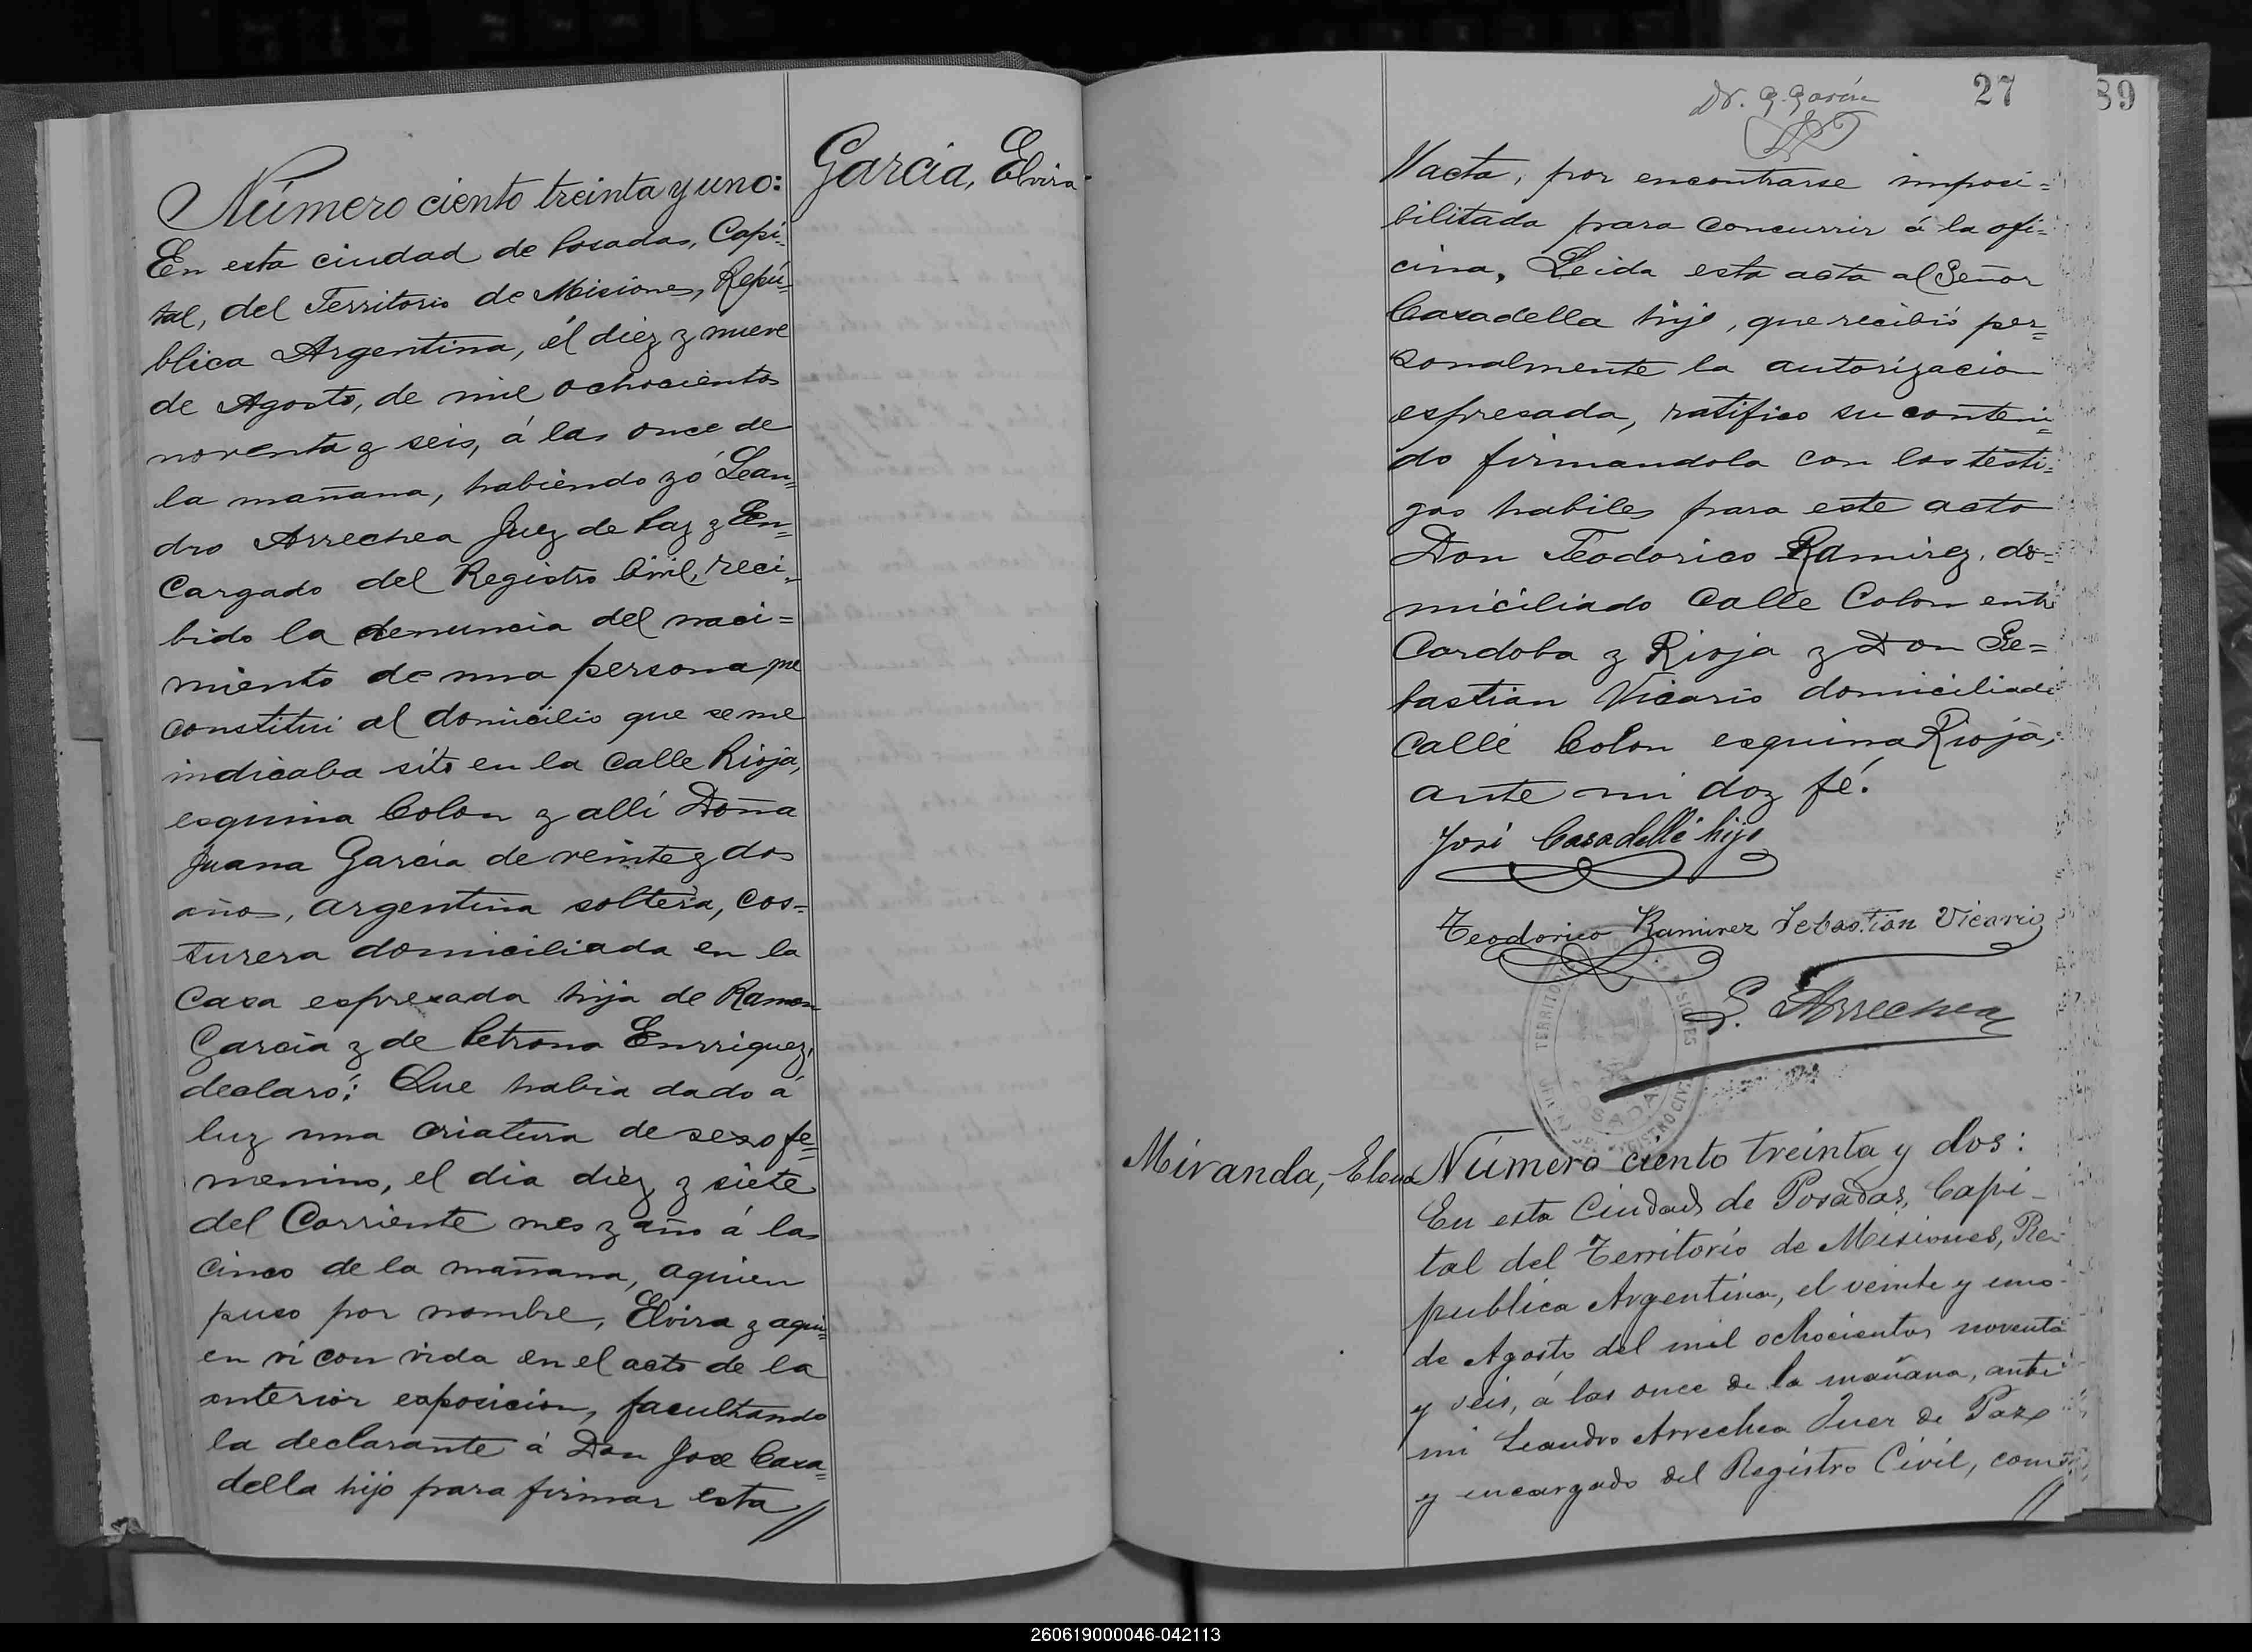 Número ciento treinta y uno:
García, Elvira
En esta ciudad de Posadas, Capi=
tal, del Territorio de Misiones, Repú=
blica Argentina, él diez y nueve
de Agosto, de mil ochocientos
noventa y seis, á las once de
la mañana, habiendo yó Lean=
dro Arrechea Juez de Paz y En=
cargado del Registro Civil, reci=
bido la denuncia del naci=
miento de una persona me
constitui al domicilio que se me
indicaba sito en la calle Rioja,
esquina Colon y allí Doña
Juana García de veinte y dos
años, argentina soltera, cos=
turera domiciliada en la
casa espresada hija de Ramon
García y de Petrona Enrriquez,
declaró: Que habia dado á
luz una criatura de sexo fe=
menino, el dia diez y siete
del Corriente mes y año á las
cinco de la mañana, aquien
puso por nombre, Elvira y aqui=
en ví con vida en el acto de la
anterior exposicion, facultando
la declarante á Don José Casa=
della hijo para firmar esta //
27
89
// acta, por encontrarse imposi=
bilitada para concurrir á la ofi=
cina, Leida esta acta al Señor
Casadella hijo, que recibió per=
sonalmente la autorizacion
espresada, ratifico su conteni=
do firmandola con los testi=
gos habiles para este acto
Don Teodorico Ramirez, do=
miciliado Calle Colon entre
Cordoba y Rioja y Don Se=
bastian Vicario domiciliado
calle Colon esquina Rioja,
ante mi doy fé.
José Casadellá hijo
Teodorico Ramirez Sebastian Vicario
L. Arrechea
TERRITORIO MISIONES
POSADAS
REGISTRO CIVIL
Miranda, Elena
Número ciento treinta y dos:
En esta Ciudad de Posadas, Capi-
tal del Territorio de Misiones, Re-
publica Argentina, el veinte y uno
de Agosto del mil ochocientos noventa
y seis, á las once de la mañana, ante
mi Leandro Arrechea Juez de Paz
y encargado del Registro Civil, com
//
260619000046-042113